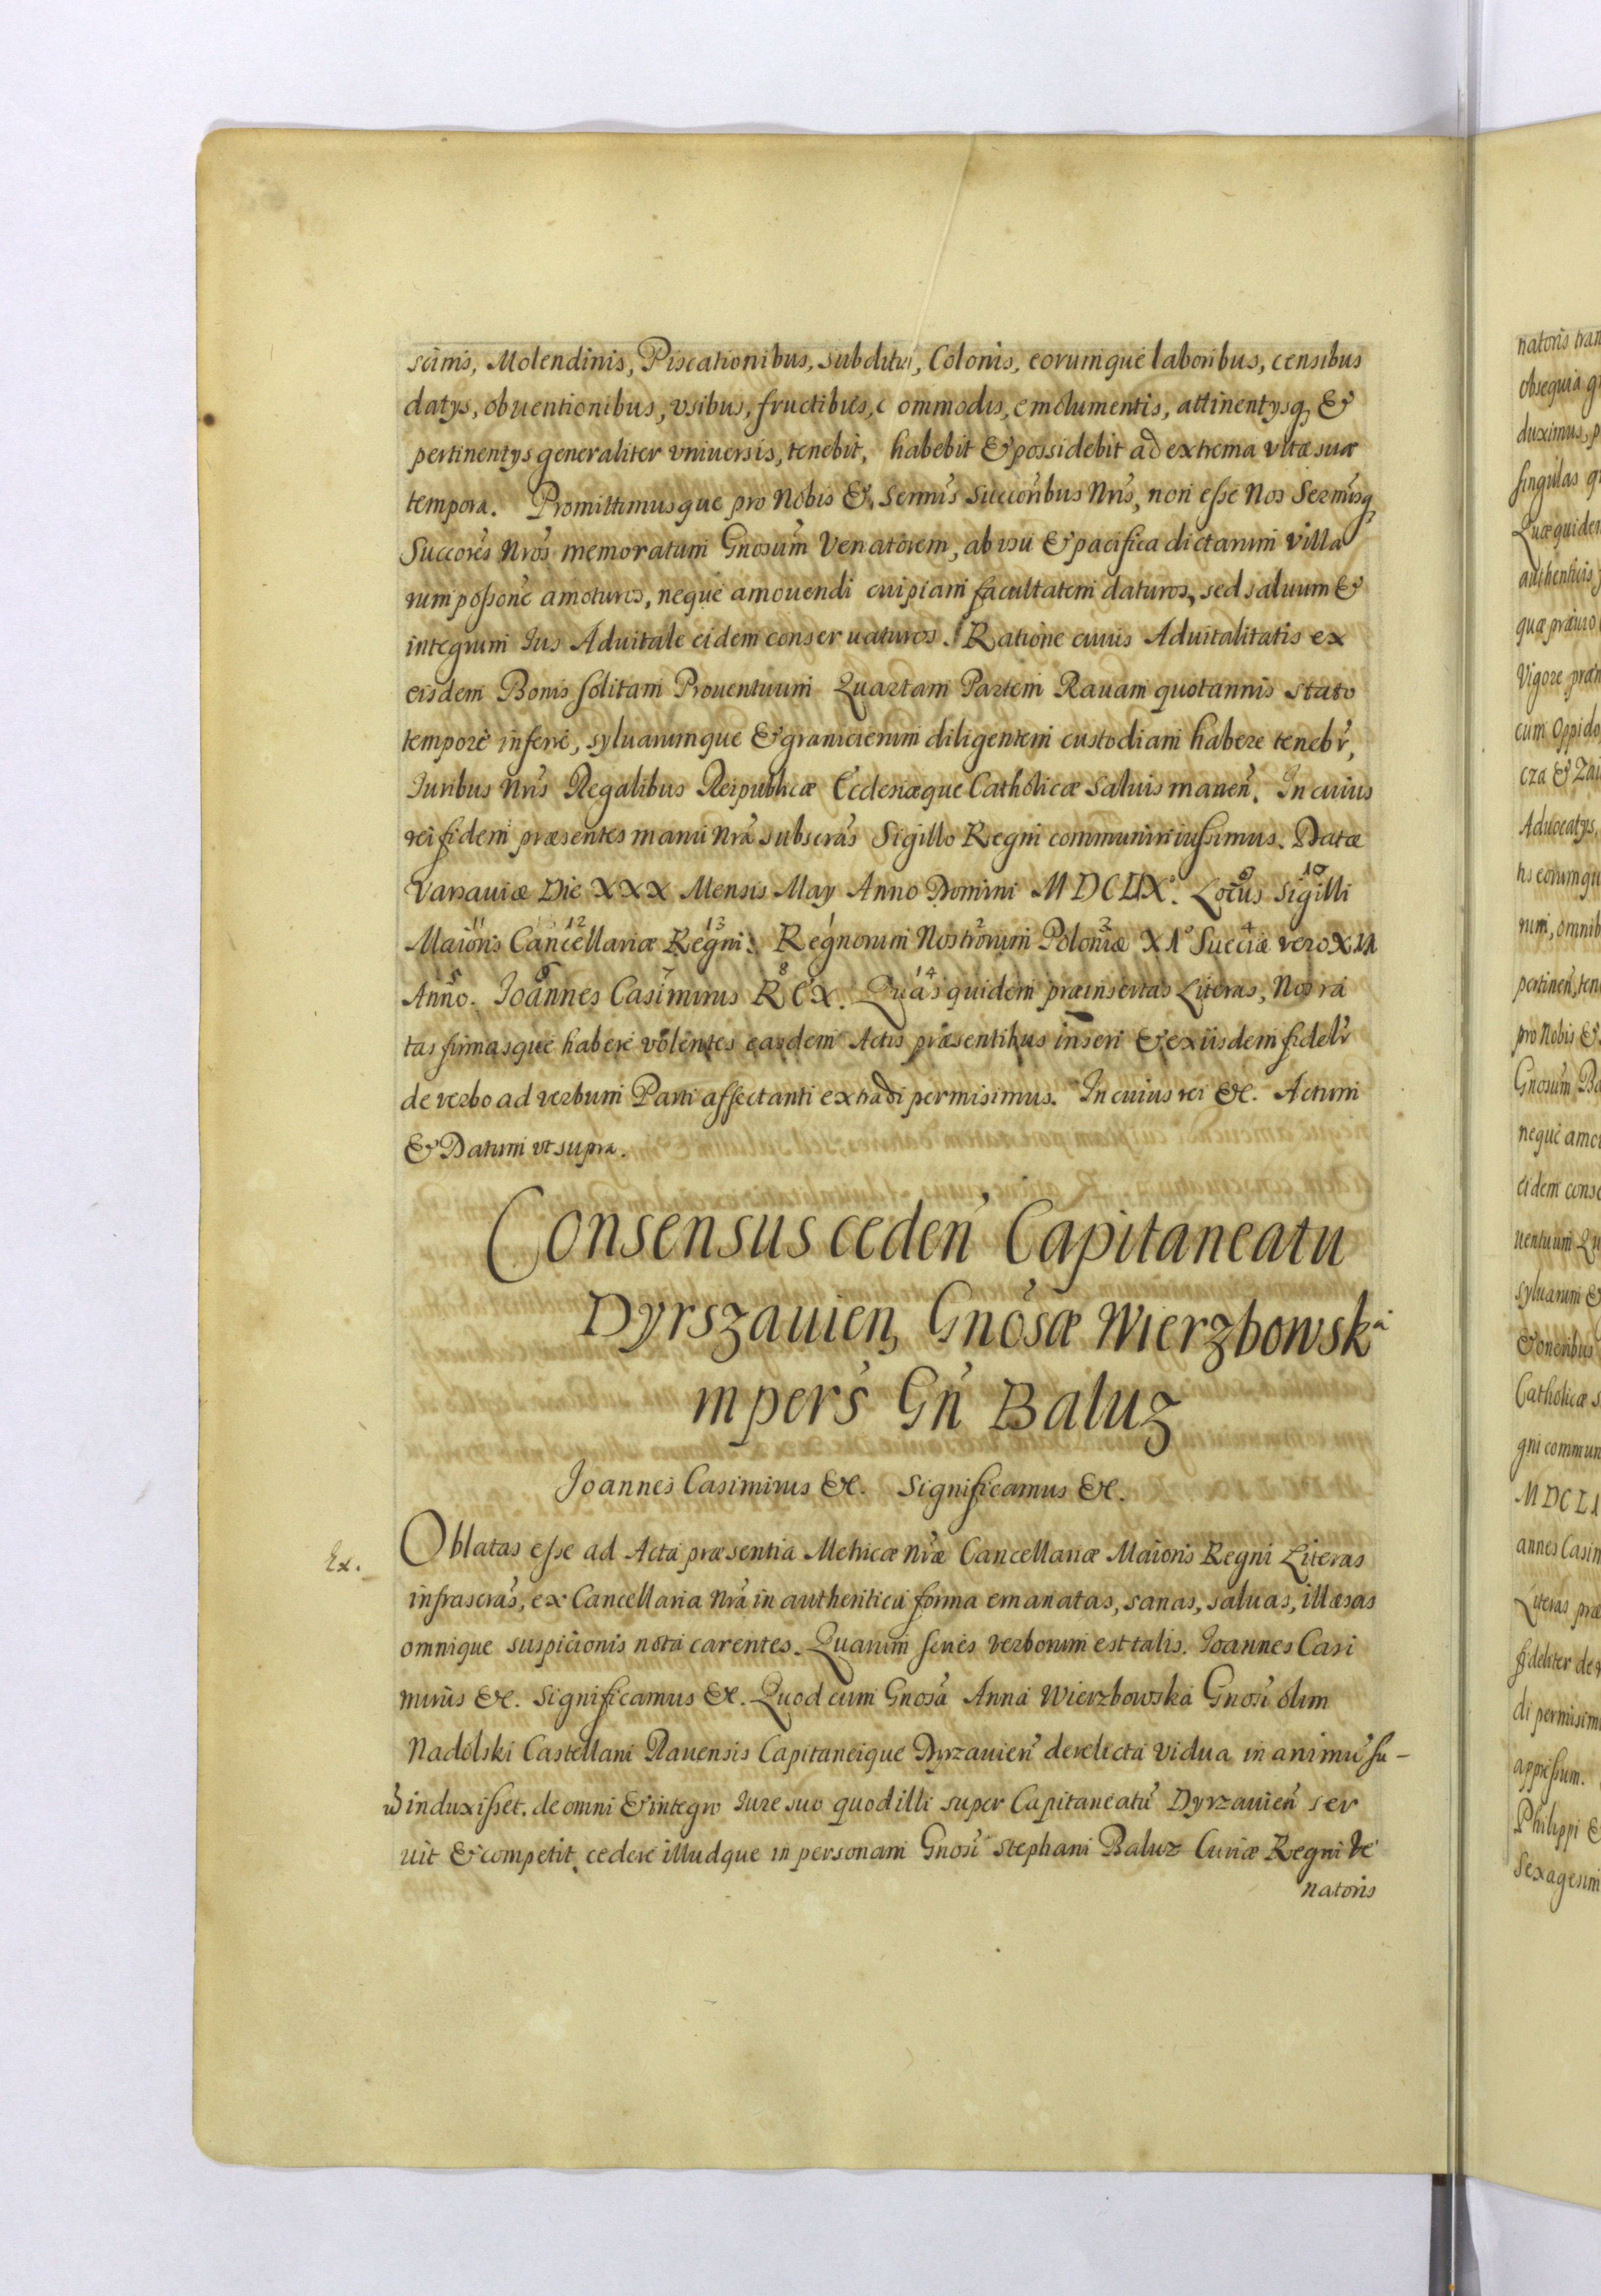 scinis, Molendinis, Piscationibus, subditis, Colonis, eorumque laboribus, censibus
datys, obuentionibus, vsibus, fructibus, commodis, emolumentis, attinentysq, &
pertinentys generaliter vniuersis, tenebit, habebit & possidebit ad extrema vitæ suæ
tempora. Promittimusque pro Nobis & Sermis Succoribus Nris, non esse Nos Sermosq
Succores Nros memoratum Gnosum Venatorem, ab vsu & pacifica dictarum villa
rum possone amoturos, neque amouendi cuipiam facultatem daturos, sed saluum &
integrum Ius Aduitale eidem conseruaturos. Ratione cuius Aduitalitatis ex
eisdem Bonis solitam Prouentuum Quartam Partem Rauam quotannis stato
tempore inferre, syluarumque & granicierum diligentem custodiam habere tenebr,
Iuribus Nris Regalibus Reipublicæ Ecclesiæque Catholicæ saluis manen. In cuius
rei fidem præsentes manu Nra subscras Sigillo Regni communiri iussimus. Datæ
Varsauiæ Die XXX Mensis May Anno Domini MDCLIX°. Locus Sigilli
Maioris Cancellariæ Regni. Regnorum Nostrorum Poloniæ XI° Sueciæ vero XII
Anno. Joannes Casimirus REX. Quas quidem præinsertas Literas, Nos ra
tas firmasque habere volentes easdem Actis præsentibus inseri & ex iisdem fidelr
de verbo ad verbum Parti affectanti extradi permisimus. In cuius rei &c. Actum
& Datum vt supra.
Consensus ceden Capitaneatu
Dyrszauien, Gnosæ Wierzbowska
in pers Gn Baluz
Joannes Casimirus &c. Significamus &c.
Ex. Oblatas esse ad Acta præsentia Metricæ Nræ Cancellariæ Maioris Regni Literas
infrascras, ex Cancellaria Nra in authentica forma emanatas, sanas, saluas, illæsas
omnique suspicionis nota carentes. Quarum series verborum est talis. Joannes Casi
mirus &c. Significamus &c. Quod cum Gnosa Anna Wierzbowska Gnosi olim
Nadolski Castellani Rauensis Capitaneique Dyrzauien derelicta Vidua in animu su-
u induxisset. de omni & integro Iure suo quod illi super Capitaneatu Dyrzauien ser
uit & competit, cedere illudque in personam Gnosi Stephani Baluz Curiæ Regni Ve
natoris